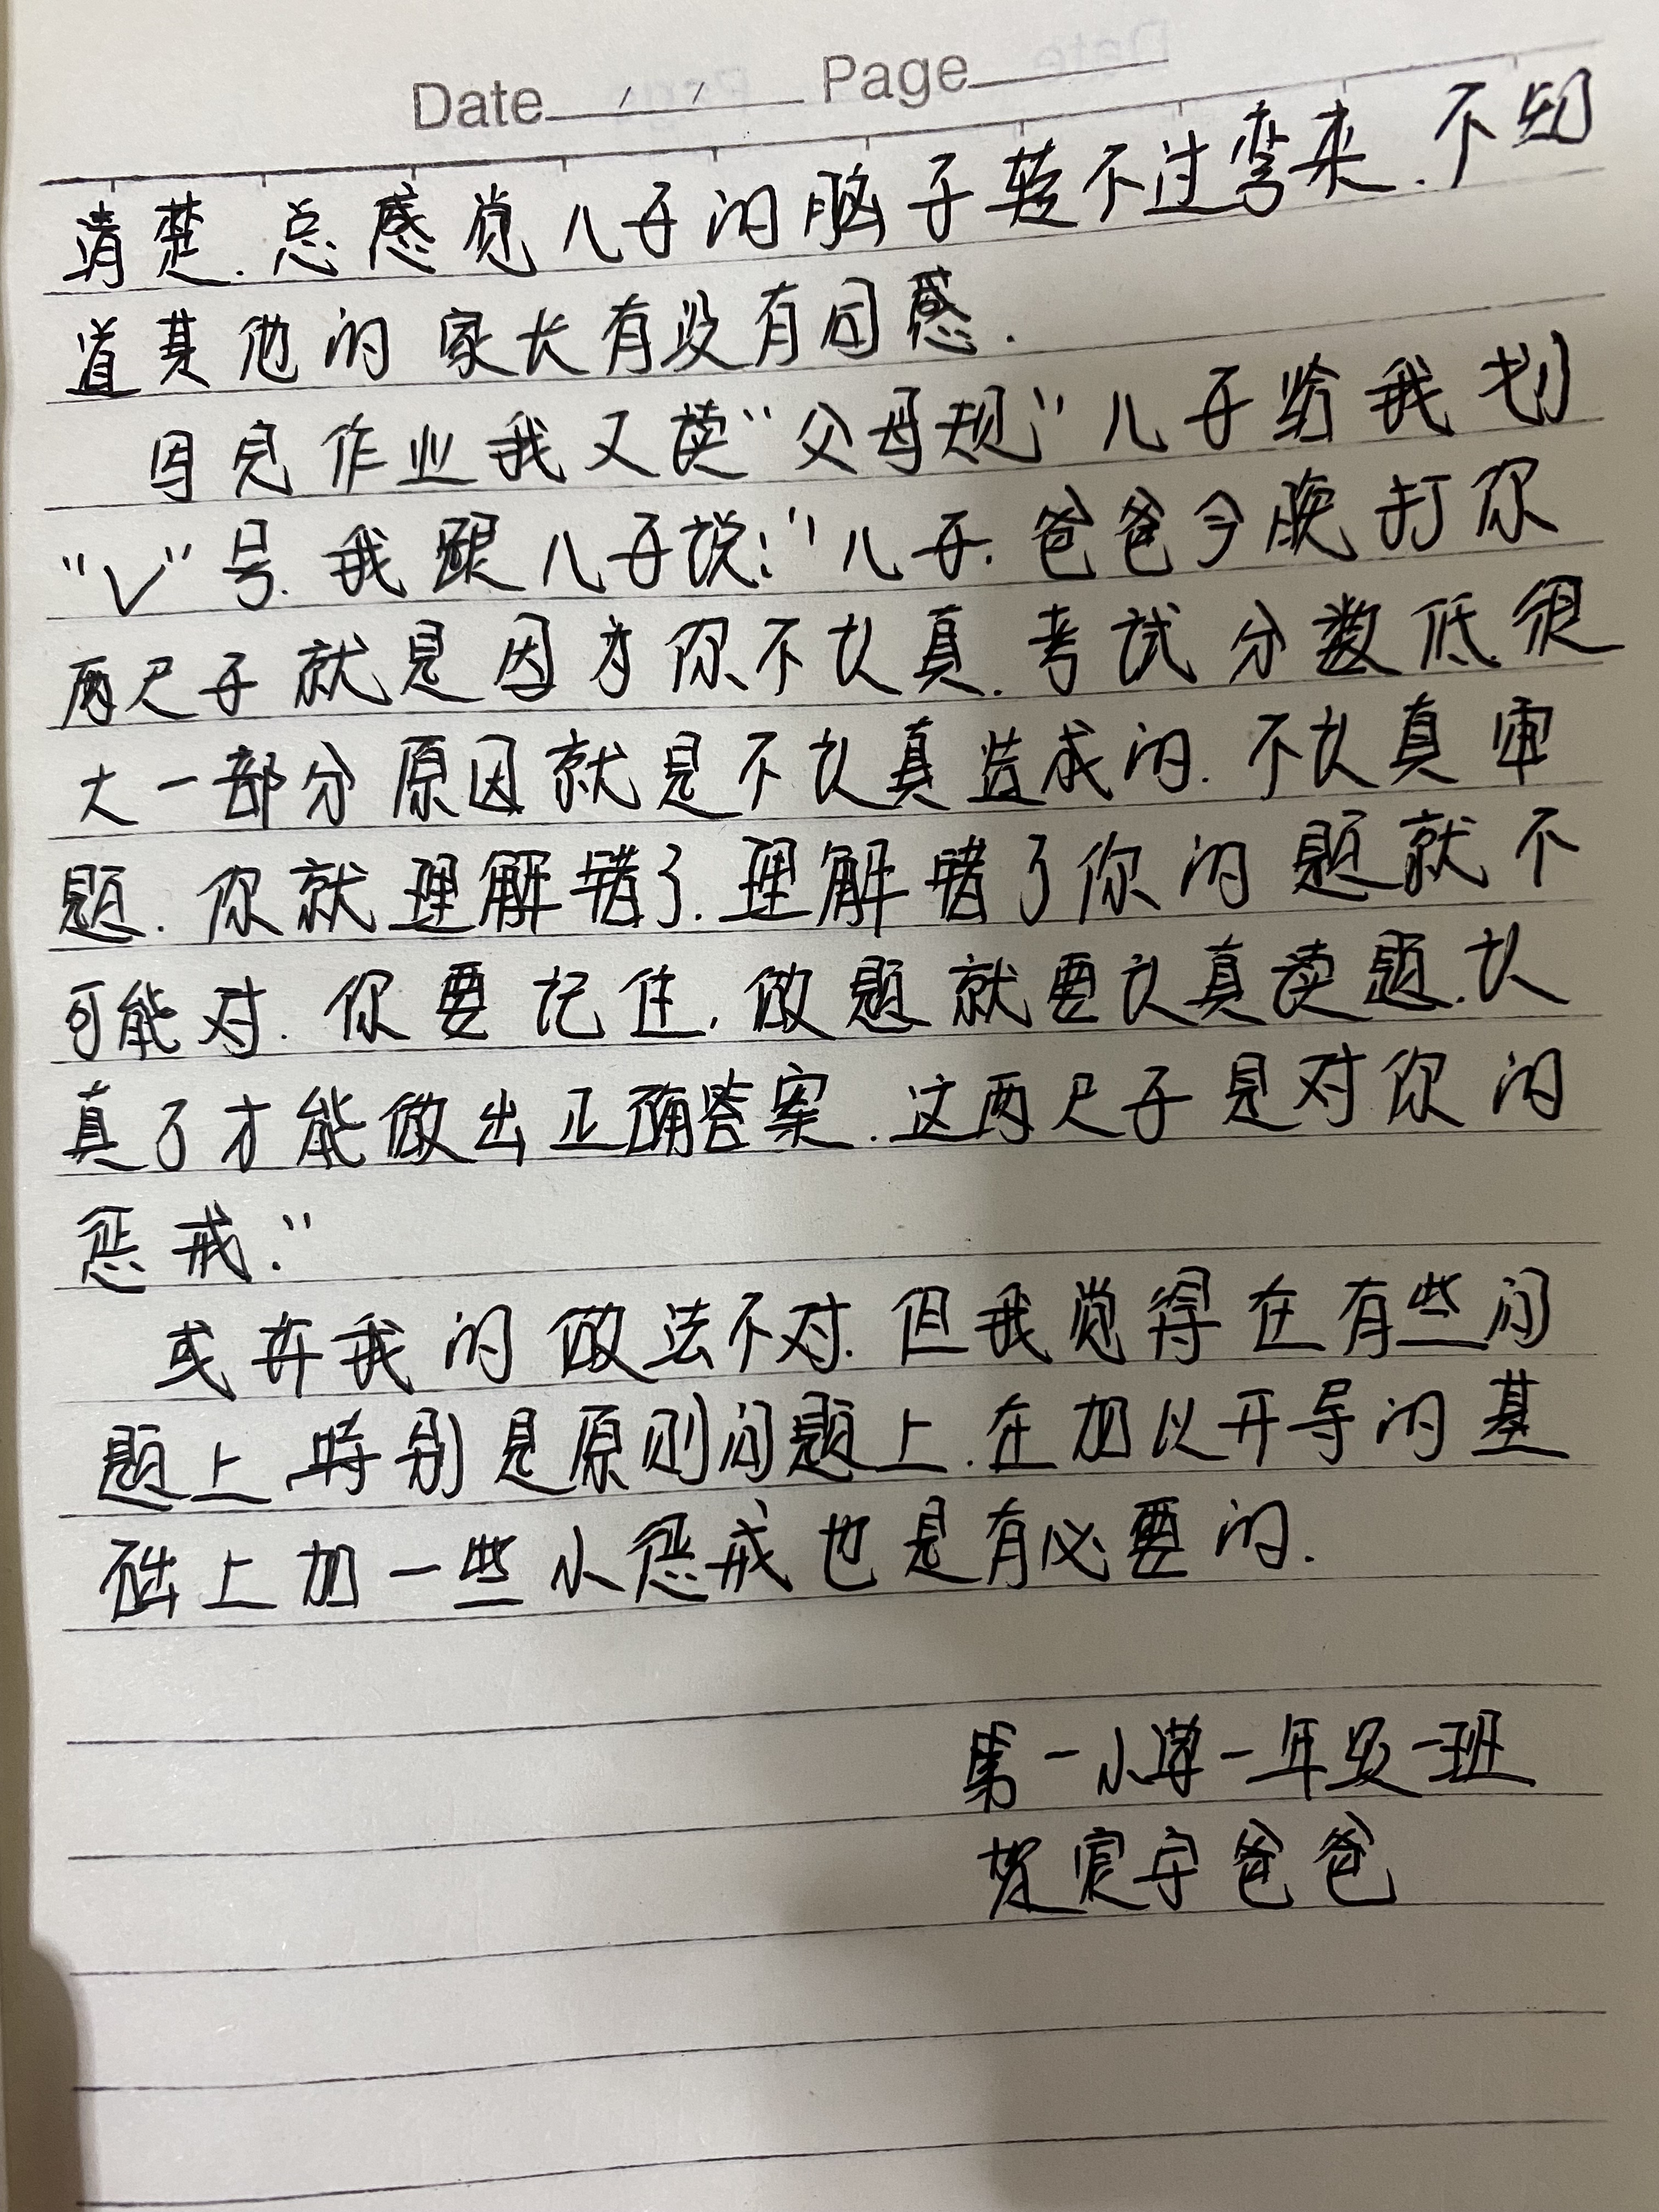 Date / / Page
清楚.总感觉儿子的脑子转不过弯来.不知
道其他的家长有没有同感.
写完作业我又读"父母规"儿子给我划
"√"号.我跟儿子说:"儿子.爸爸今晚打你
两尺子就是因为你不认真.考试分数低.很
大一部分原因就是不认真造成的.不认真审
题.你就理解错了.理解错了你的题就不
可能对.你要记住.做题就要认真读题.认
真了才能做出正确答案.这两尺子是对你的
惩戒."
或许我的做法不对.但我觉得在有些问
题上.特别是原则问题上.在加以开导的基
础上加一些小惩戒也是有必要的.
第一小学一年级一班
贺宸宇爸爸